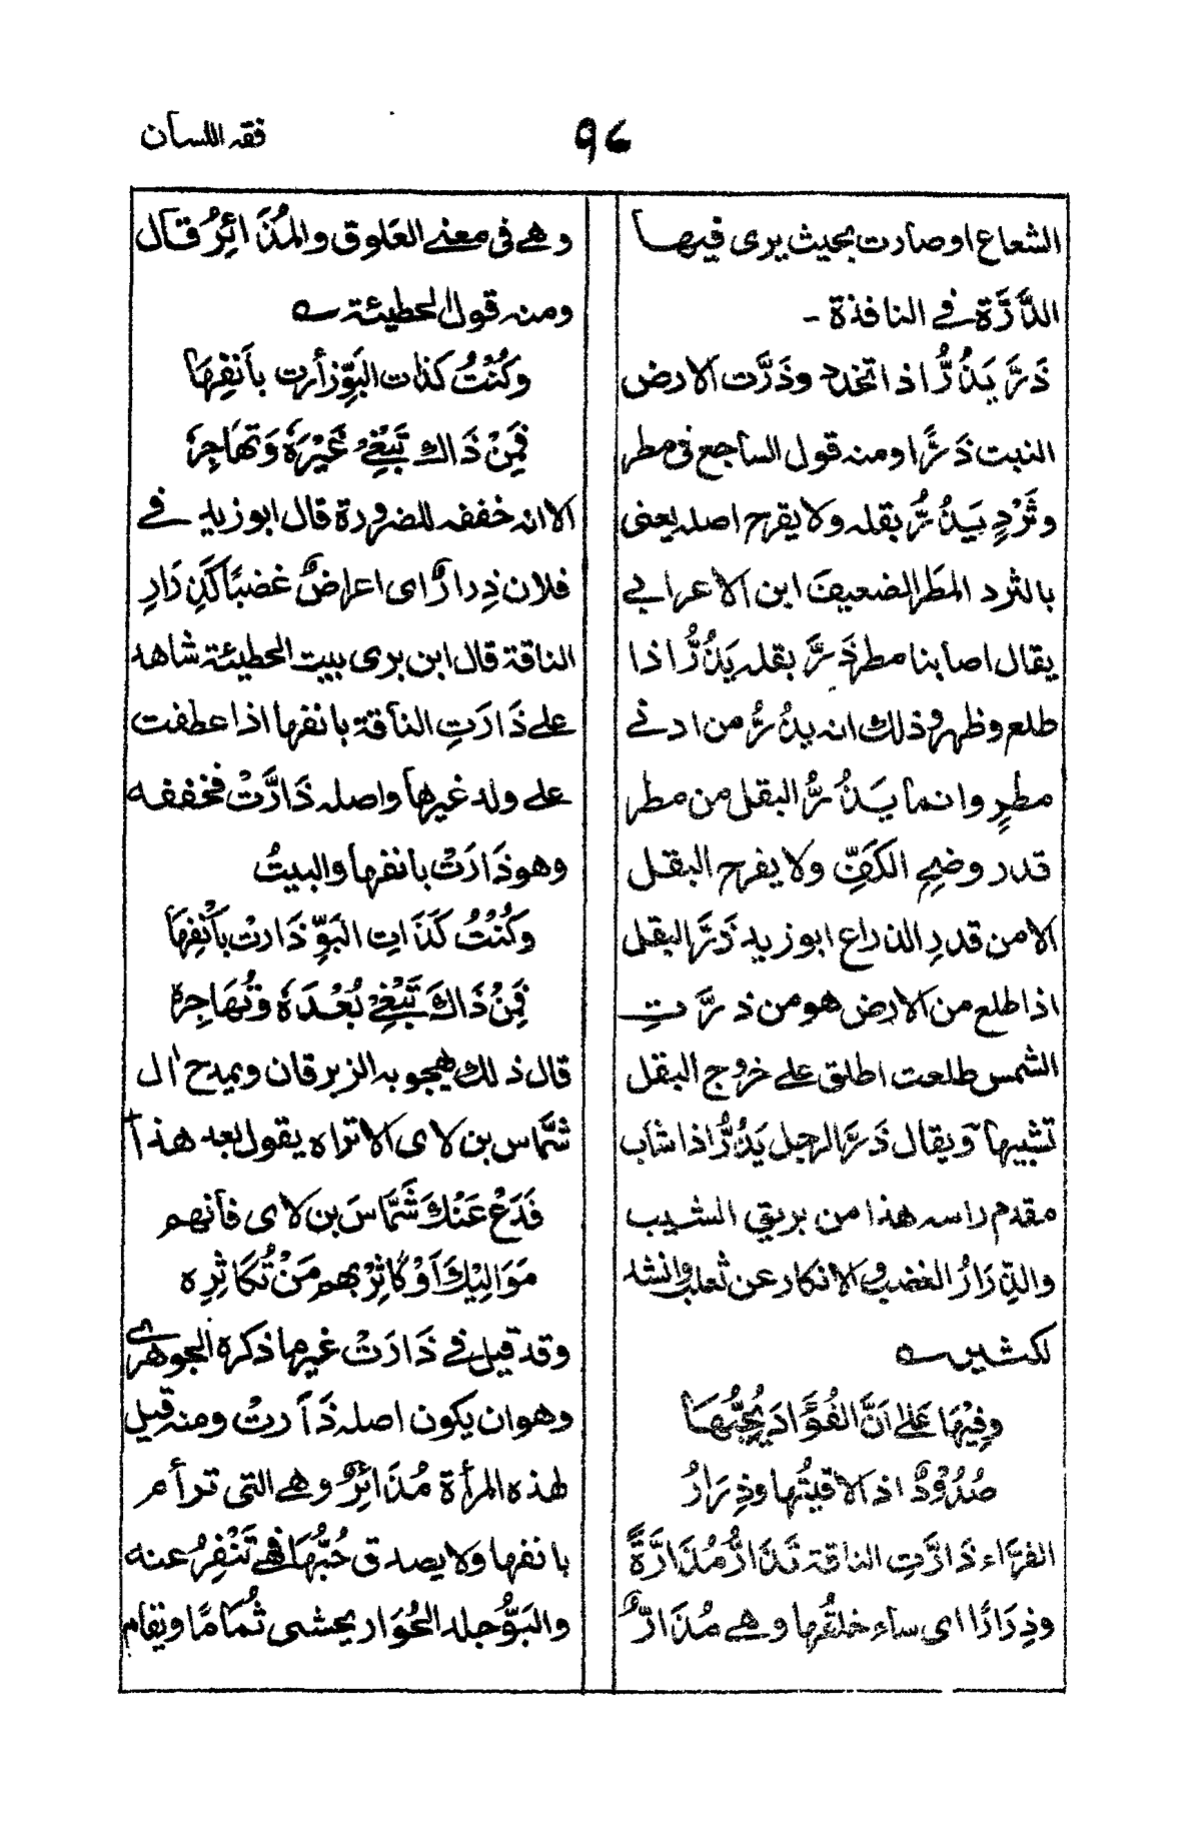 فقه اللسان
٩٦
الشعاع اوصارت بحيث يرى فيها
الذَّرَّة فے النافذة -
ذَرَّ يَذُرُّ اذا تخدد وذَرَّت الارض
النبت ذَرًّا ومنه قول الساجع فى مطر
وثَرْدٍ يَذُرُّ بقله ولا يقرح اصله يعنى
بالثرد المطر الضعيف ابن الاعرابے
يقال اصابنا مطر ذَرَّ بقله يَذُرُّ اذا
طلع وظهر وذلك انه يذُرُّ من ادنے
مطرٍ وانما يَذُرُّ البقل من مطر
قدر وضحِ الكَفِّ ولا يفرح البقل
الا من قدرِ الذراع ابوزيد ذَرَّ البقل
اذا طلع من الارض هو من ذرَّتِ
الشمس طلعت اطلق على خروج البقل
تشبيها ويقال ذَرَّ الرجل يَذُرُّ اذا شاب
مقدم راسه هذا من بريق الشيب
والذِّرَارُ الغضب والانكار عن ثعلب وانشد
لكثير ــه
وفِيْهَا عَلےٰ اَنَّ الفُؤَادَ يُحِبُّهَا
صُدُوْدٌ اذ الاقيتُها وذِرَارُ
الفرّاء ذَارَّتِ الناقة تَذَارُّ مُذَارَّةً
وذِرَارًا اى ساء خلقُها وهے مُذَارٌّ
وهے فى معنے العَلوق والمُذَائِرُ قال
ومنه قول الحطيئة ــه
وَكُنْتُ كذات البَوِّ ذأرت بأنفِهَا
فَمِنْ ذَاك تَبْغِيْ غَيْرَهٗ وَتهَاجِرُهٗ
الا انه خففه للضرورة قال ابوزيد فے
فلان ذِرارٌ اى اعراضٌ غضبًا كَذِرَارِ
الناقة قال ابن برى بيت الحطيئة شاهد
علے ذَارَتِ الناقة بانفها اذا عطفت
علے ولد غيرها واصله ذَارَّتْ فخففه
وهو ذَارَتْ بانفها والبيتُ
وَكُنْتُ كَذَاتِ البَوِّ ذَارتْ بأَنْفِهَا
فَمِنْ ذَاكَ تَبْغِيْ بُعْدَهٗ وتُهَاجِرُهٗ
قال ذلك يهجو به الزبرقان ويمدح اٰل
شمَّاس بن لاى الا تراه يقول بعد هذا
فَدَعْ عَنْكَ شَمَّاسَ بن لاى فانهم
مَوَالِيْكَ اَوْ كَاثِرْ بهم مَنْ تُكَاثِرُه
وقد قيل فے ذَارَتْ غير ما ذكره الجوهرے
وهو ان يكون اصله ذَآرتْ ومنه قيل
لهذه المرأة مُذَائِرٌ وهے التى ترأم
بانفها ولا يصدق حُبُّهَا فهے تَنْفِرُ عنه
والبَوُّ جلد الحُوَار يحشى ثُمَامًا ويقام